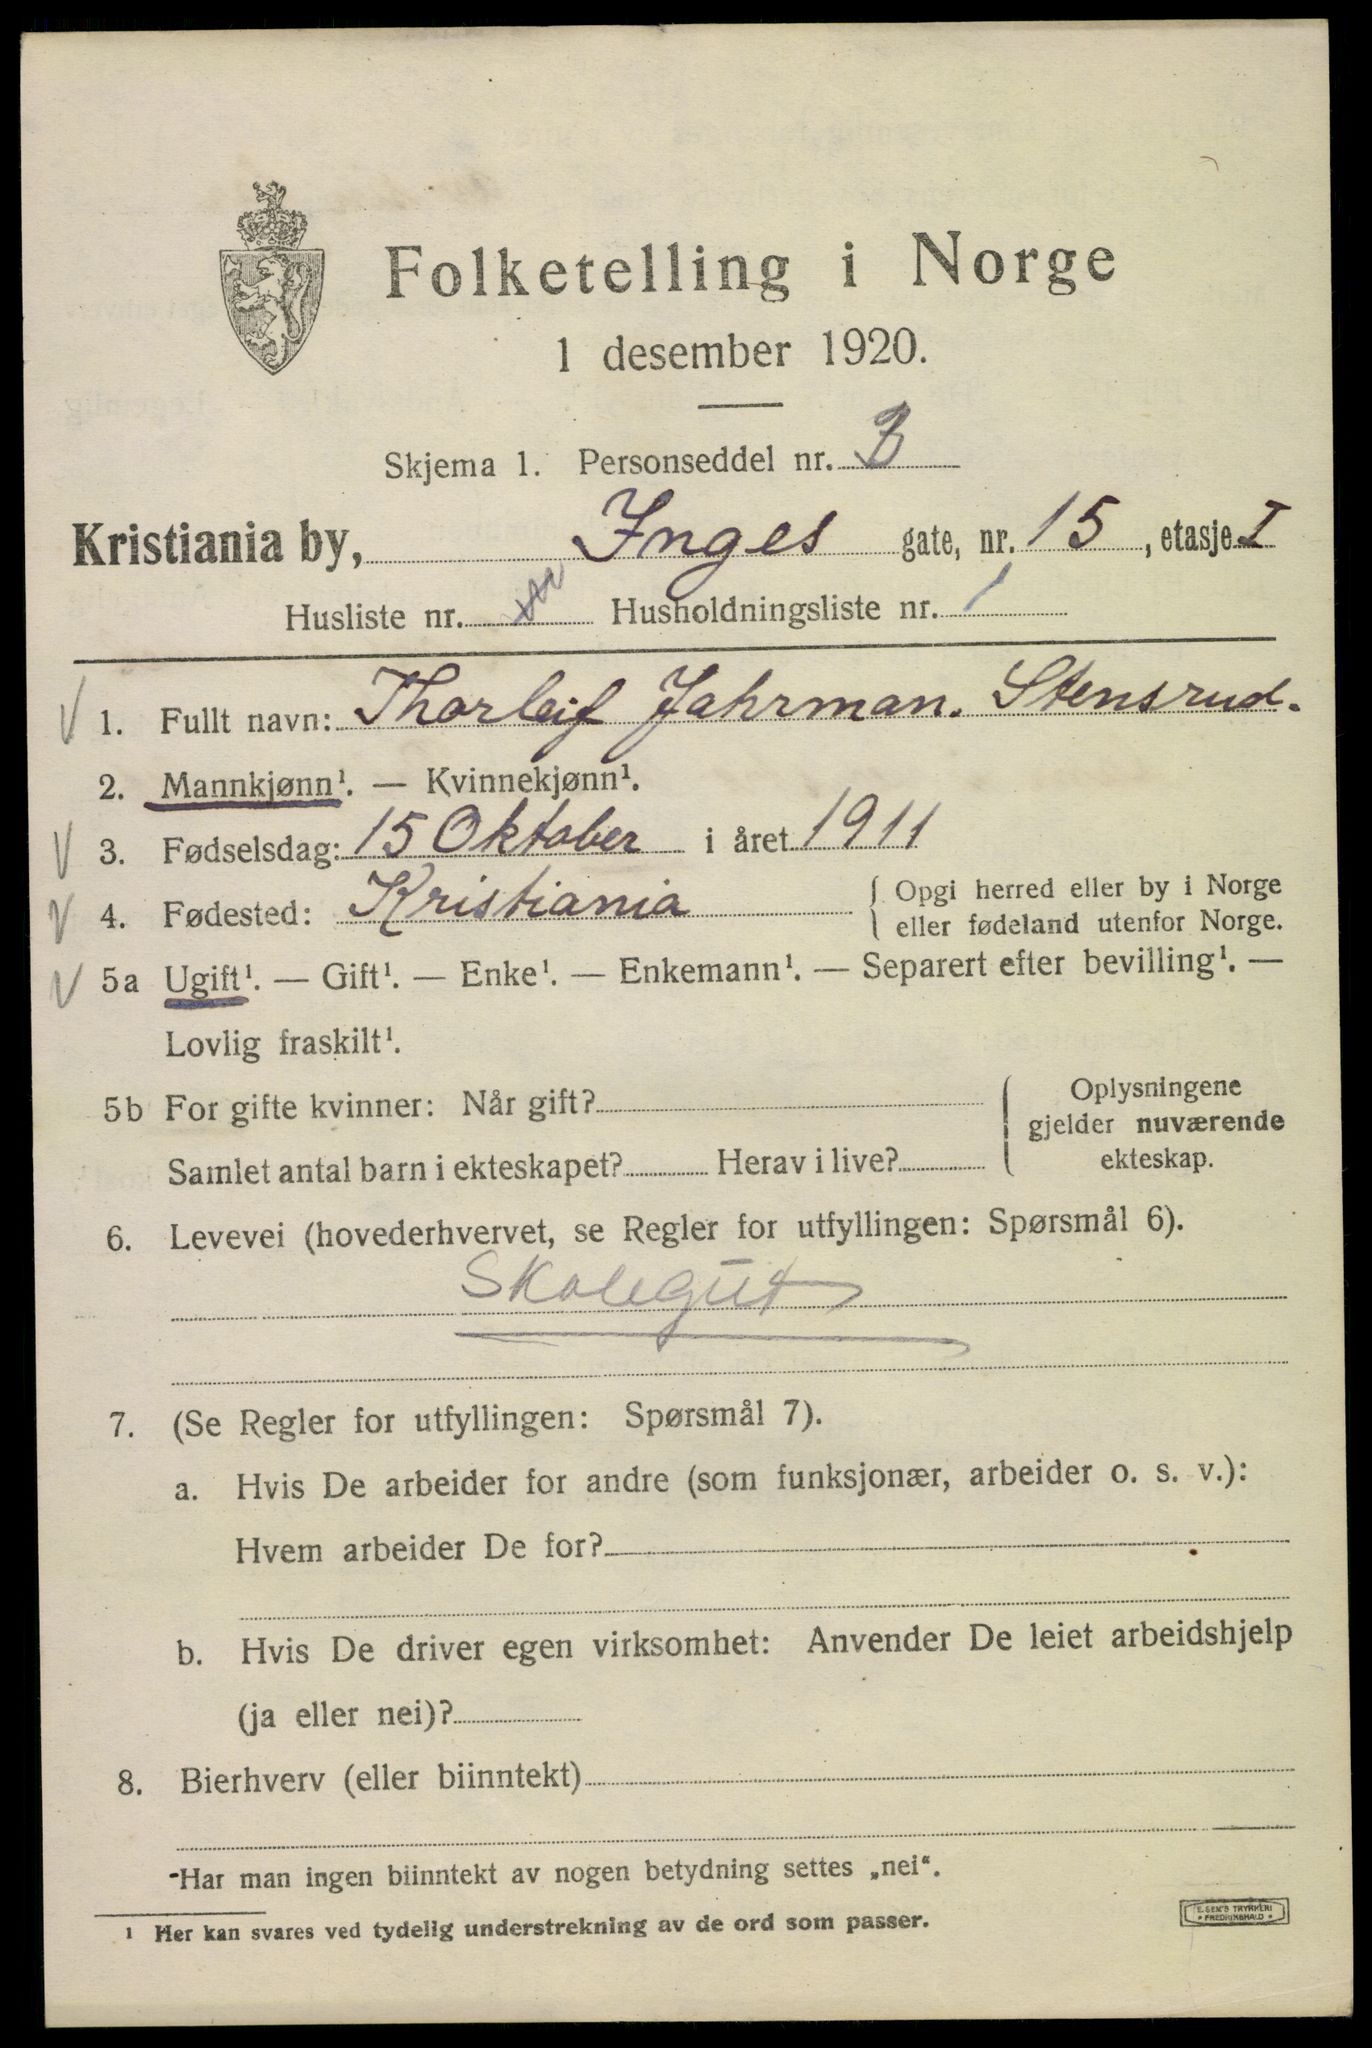 Folketelling i Norge
1 desember 1920.
Skjema 1. Personseddel nr. 3
Kristiania by, Inges gate, nr. 15, etasje I
Husliste nr. Husholdningsliste nr. 1
1. Fullt navn: Thorleif Jahrman. Stensrud.
2. Mannkjønn¹. — Kvinnekjønn¹.
3. Fødselsdag: 15 Oktober i året 1911
4. Fødested: Kristiania { Opgi herred eller by i Norge
eller fødeland utenfor Norge.
5a Ugift¹. — Gift¹. — Enke¹. — Enkemann¹. — Separert efter bevilling¹. —
Lovlig fraskilt¹.
5b For gifte kvinner: Når gift? { Oplysningene
gjelder nuværende
Samlet antal barn i ekteskapet? Herav i live? ekteskap.
6. Levevei (hovederhvervet, se Regler for utfyllingen: Spørsmål 6).
Skolegut
7. (Se Regler for utfyllingen: Spørsmål 7).
a. Hvis De arbeider for andre (som funksjonær, arbeider o. s. v.):
Hvem arbeider De for?
b. Hvis De driver egen virksomhet: Anvender De leiet arbeidshjelp
(ja eller nei)?
8. Bierhverv (eller biinntekt)
Har man ingen biinntekt av nogen betydning settes „nei“.
¹ Her kan svares ved tydelig understrekning av de ord som passer.
E. SEM'S TRYKKERI
• FREDRIKSHALD •